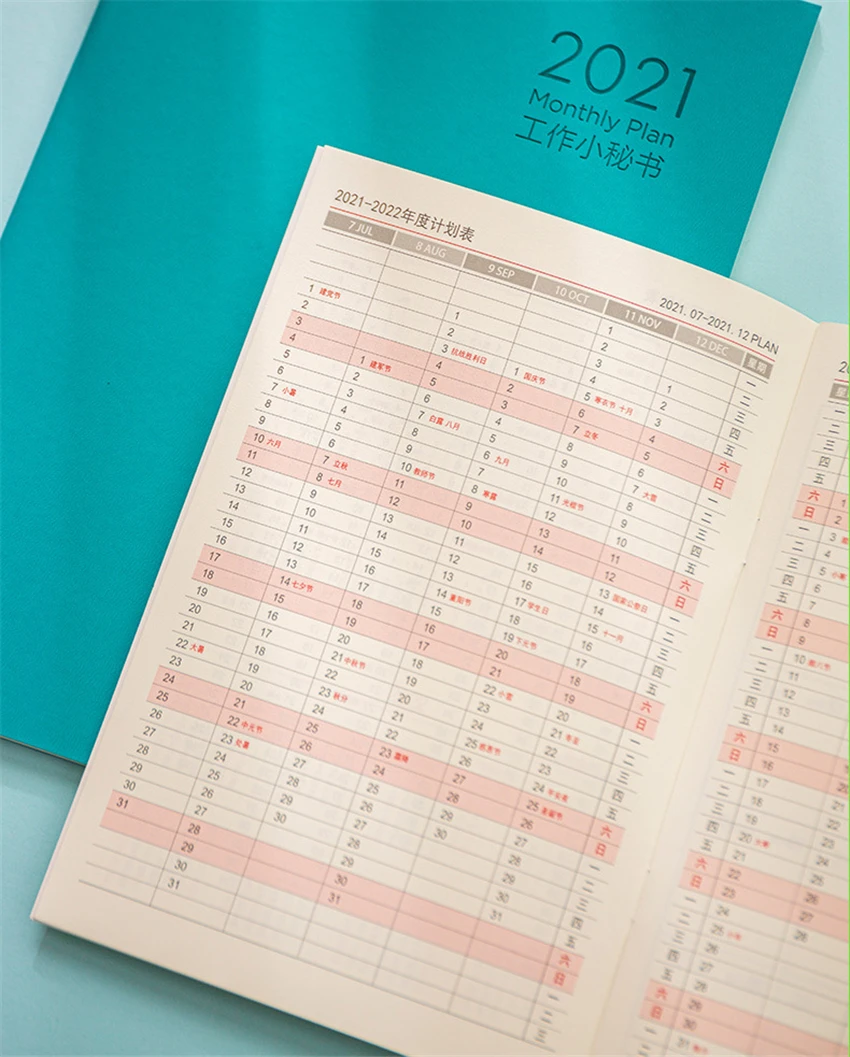 2021
Monthly Plan
工作小秘书
2021-2022年度计划表
2021. 07-2021. 12 PLAN
7 JUL 8 AUG 9 SEP 10 OCT 11 NOV 12 DEC 星期
1 一
2 二
1 3 1 三
1 建党节 2 4 2 四
2 3 抗战胜利日 1 国庆节 5 寒衣节 十月 3 五
3 4 2 6 4 六
4 1 建军节 5 3 7 立冬 5 日
5 2 6 4 8 6 一
6 3 7 白露 八月 5 9 7 大雪 二
7 小暑 4 8 6 九月 10 8 三
8 5 9 7 11 光棍节 9 四
9 6 10 教师节 8 寒露 12 10 五
10 六月 7 立秋 11 9 13 11 六
11 8 七月 12 10 14 12 日
12 9 13 11 15 13 国家公祭日 一
13 10 14 12 16 14 二
14 11 15 13 17 学生日 15 十一月 三
15 12 16 14 重阳节 18 16 四
16 13 17 15 19 下元节 17 五
17 14 七夕节 18 16 20 18 六
18 15 19 17 21 19 日
19 16 20 18 22 小雪 20 一
20 17 21 中秋节 19 23 21 冬至 二
21 18 22 20 24 22 三
22 大暑 19 23 秋分 21 25 感恩节 23 四
23 20 24 22 26 24 平安夜 五
24 21 25 23 霜降 27 25 圣诞节 六
25 22 中元节 26 24 28 26 日
26 23 处暑 27 25 29 27 一
27 24 28 26 30 28 二
28 25 29 27 29 三
29 26 30 28 30 四
30 27 29 31 五
31 28 30 六
29 31 日
30 一
31 二
三
20
一
二
三
四
五
六 1
日 2
一 3
二 4
三 5 小寒
四 6
五 7
六 8
日 9
一 10 腊八节
二 11
三 12
四 13
五 14
六 15
日 16
一 17
二 18
三 19
四 20 大寒
五 21
六 22
日 23
一 24
二 25 小年
三 26
四 27
五 28
六 29
日 30
一 31